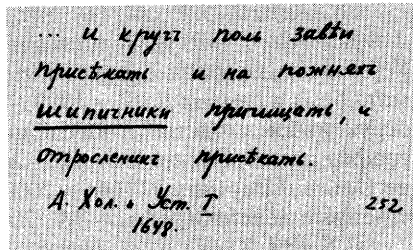 ... и кругъ поль завѣи
присѣкать и на пожняхъ
шипичники прочищать, и
отросленикъ присѣкать.
А. Хол. и Уст. I 252
1648.